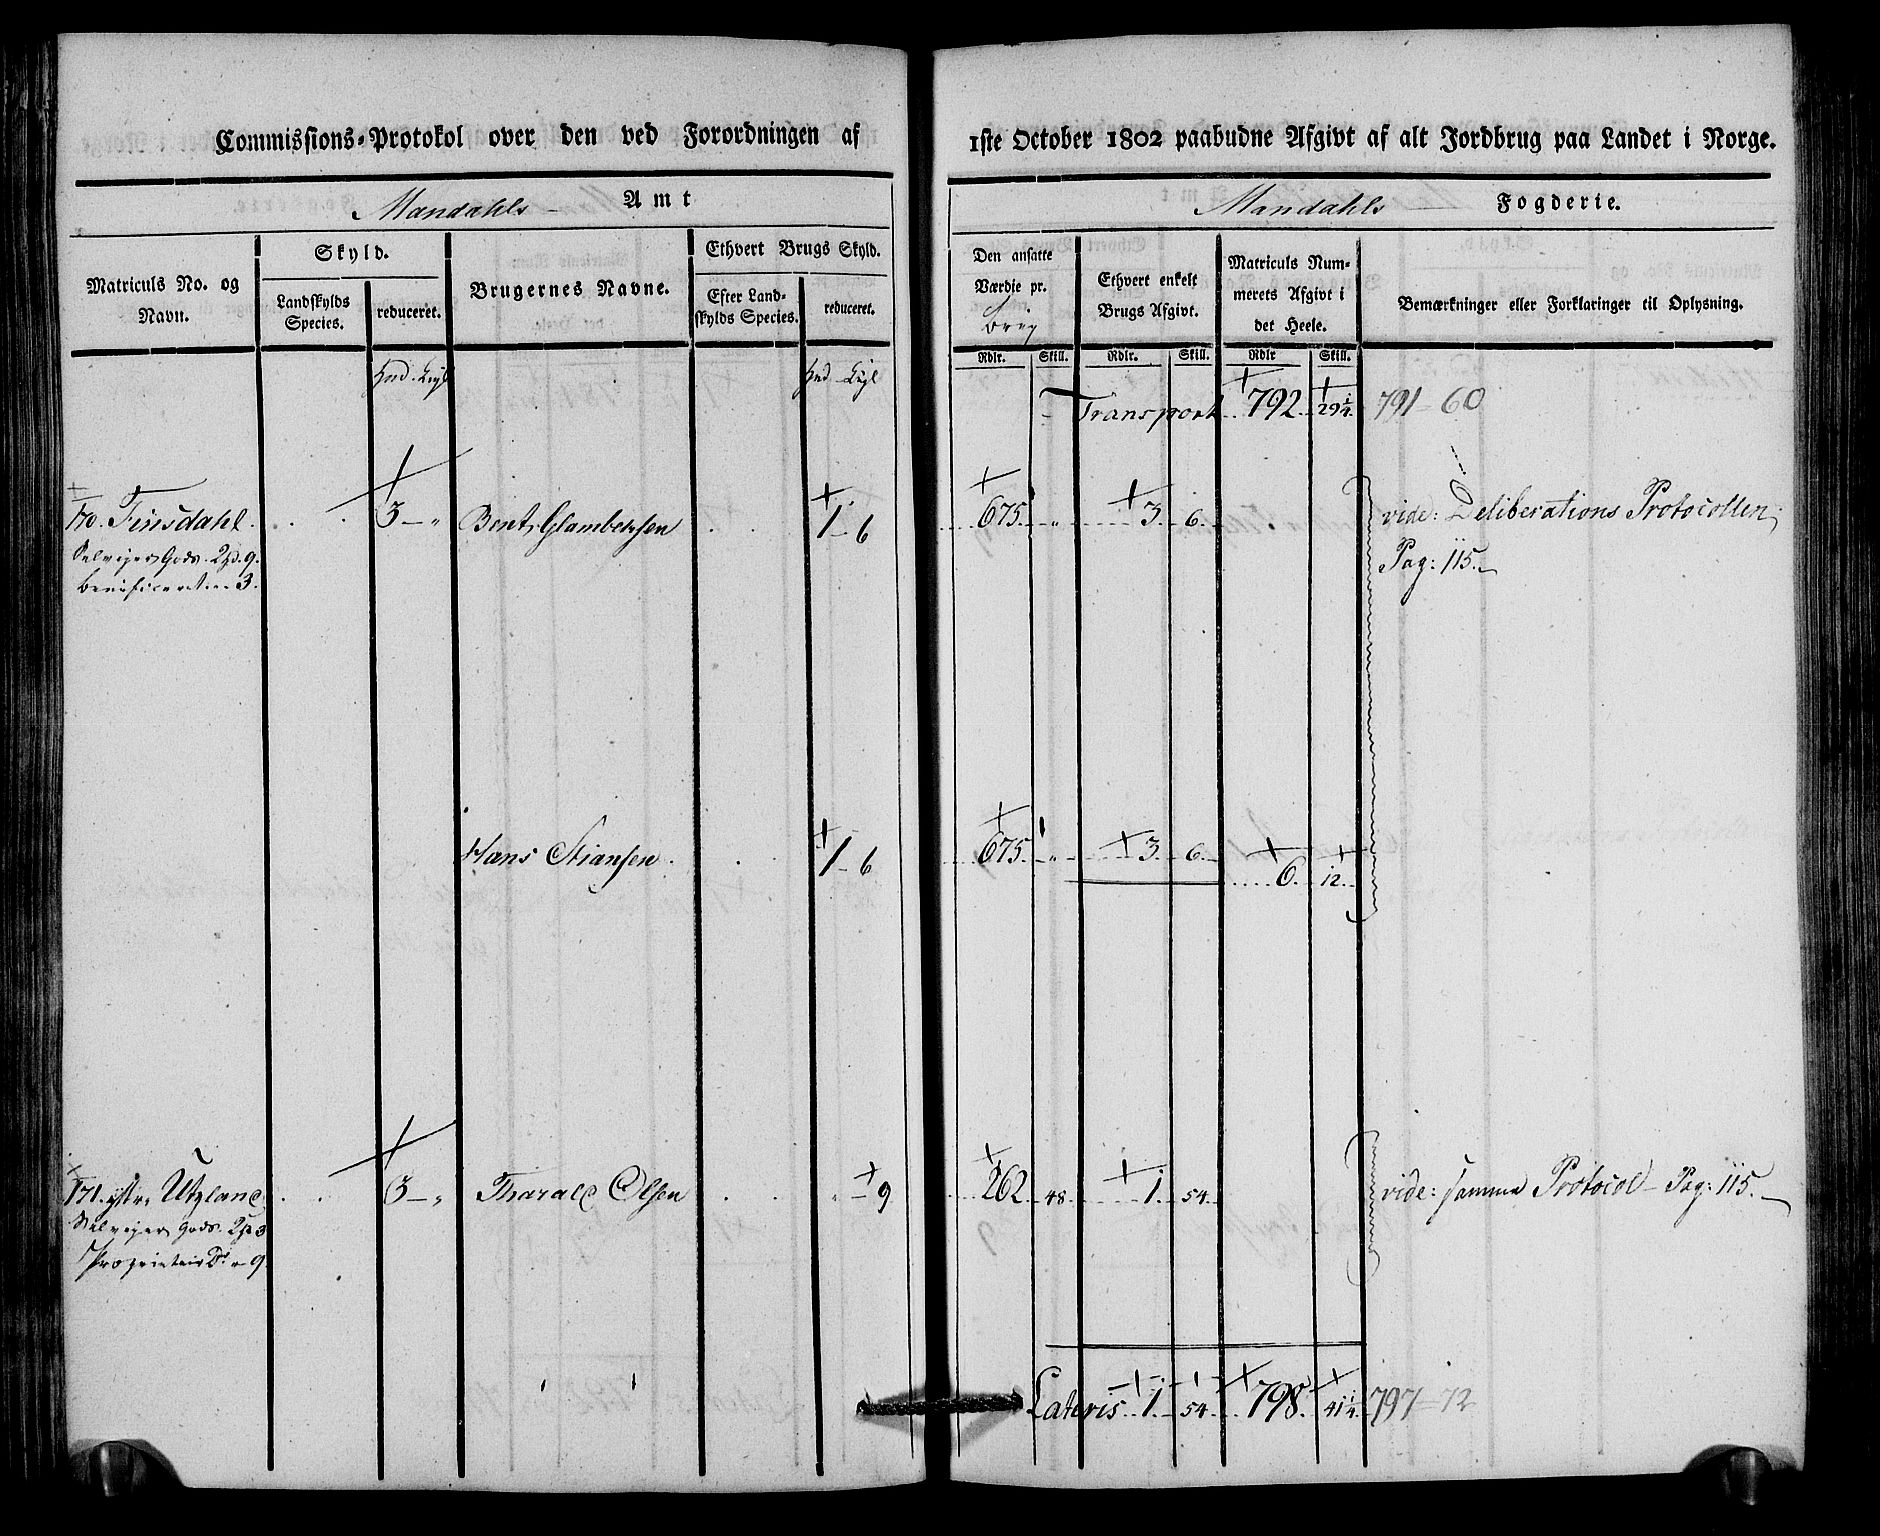 Commissions-Protokol over den ved Forordningen af
Mandahls Amt
Matriculs No. og Navn.
Skyld.
Landskylds Species.
reduceret.
Brugernes Navne.
Ethvert Brugs Skyld.
Efter Landskylds Species.
reduceret.
Hud - Engl
Hud - Engl
170. Tinsdahl. 3 - " Bent 1 - 6
Selveyer Gods. 2 9.
Beneficeret 3.
Hans Stiansen 1 - 6
171. ystre Utzland 3 - " Tharald Olsen " - 9
Selveyer Gods. 2 3
Proprietair Do " 9
1ste October 1802 paabudne Afgivt af alt Jordbrug paa Landet i Norge.
Mandahls Fogderie.
Den ansatte Værdie pr. brug
Ethvert enkelt Brugs Afgivt.
Matriculs Nummerets Afgivt i det Heele.
Bemærkninger eller Forklaringer til Oplysning.
Rdlr. Skill. Rdlr. Skill. Rdlr Skill.
Transport 792. 29 1/4. 791 - 60
675. " 3. 6. vide: Deliberations Protocollen
Pag: 115.
675. " 3. 6. 6. 12.
262 48. 1. 54. vide: samme Protocol - Pag: 115.
Lateris 1. 54. 798. 41 1/4. 797 = 72